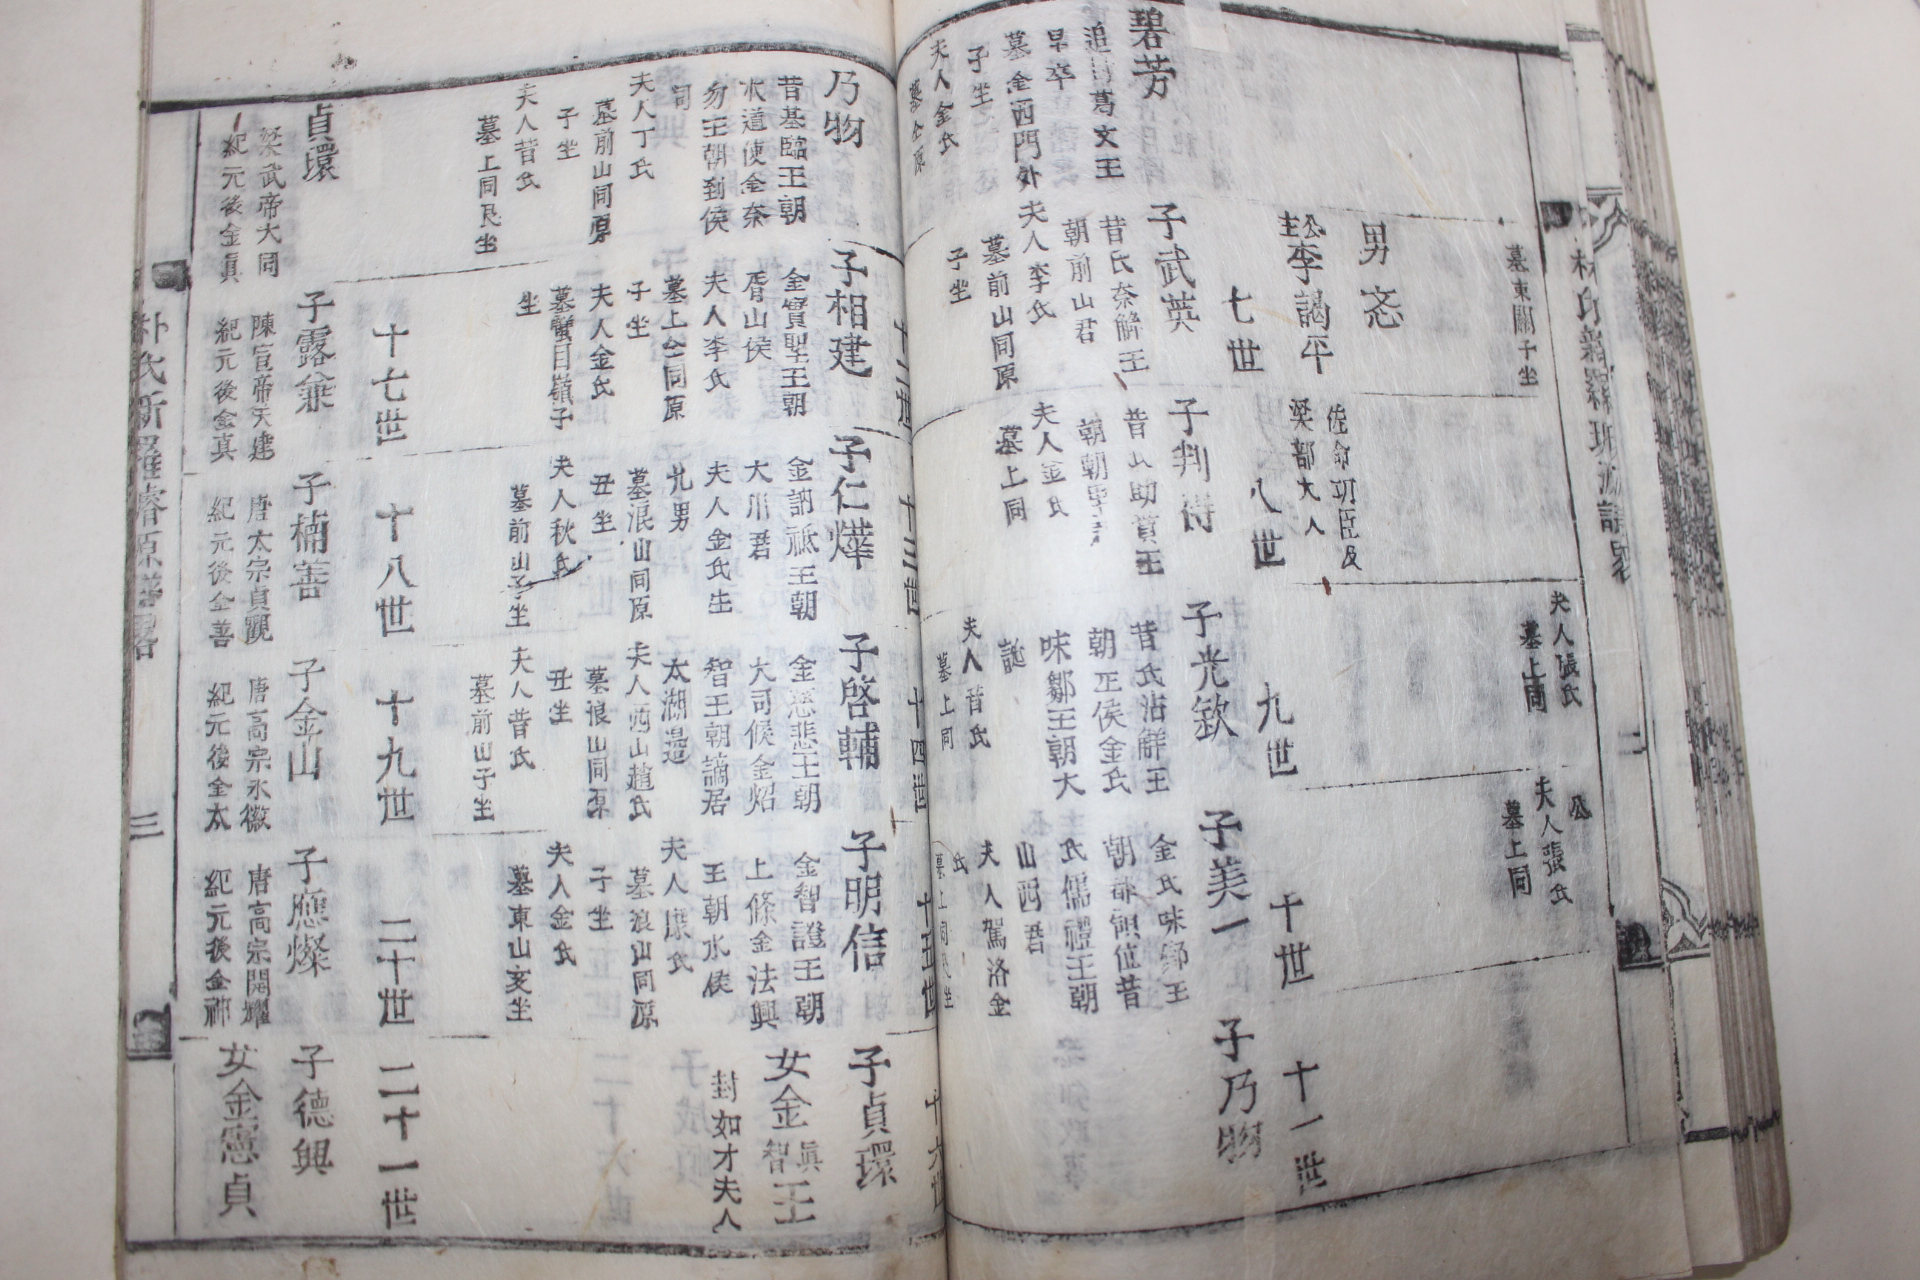 墓東關子坐
夫人張氏
墓上同
公
夫人張氏
墓上同
男忞
公主李謁平
佐命功臣及
梁部大人
七世
八世
九世
十世
十一世
碧芳
追封葛文王
早卒
墓金西門外
子坐
夫人金氏
子武英
昔氏奈解王
朝前山君
夫人李氏
墓前山同原
子坐
子判得
昔氏助賁王
夫人金氏
墓上同
子光欽
昔氏沾解王
朝正侯金氏
味鄒王朝大
夫人昔氏
墓上同
子美一
金氏味鄒王
氏儒禮王朝
山西君
夫人駕洛金
氏
子乃物
十二世
十三世
十四世
十五世
十六世
乃物
昔基臨王朝
水道使金奈
勿王朝到侯
同
夫人丁氏
墓前山同原
子坐
夫人昔氏
墓上同艮坐
子相建
金實聖王朝
眉山侯
夫人李氏
墓上仝同原
子坐
夫人金氏
墓蟹目嶺子
坐
子仁燁
金訥祗王朝
大川君
夫人金氏生
九男
墓浪山同原
丑坐
夫人秋氏
墓前山子坐
子啓輔
金慈悲王朝
大司候金炤
智王朝謫居
太湖邊
夫人西山趙氏
墓浪山同原
丑坐
夫人昔氏
墓前山子坐
子明信
金智證王朝
上條金法興
王朝水侯
夫人康氏
墓浪山同原
子坐
夫人金氏
墓東山亥坐
子貞環
女金智眞王
封如才夫人
十七世
十八世
十九世
二十世
二十一世
貞環
梁武帝大同
紀元後金眞
子露兼
陳宣帝天建
紀元後金真
子楠善
唐太宗貞觀
紀元後金善
子金山
唐高宗永徽
紀元後金太
子應燦
唐高宗開耀
紀元後金神
子德興
女金憲貞
朴氏新羅璿源譜畧
三